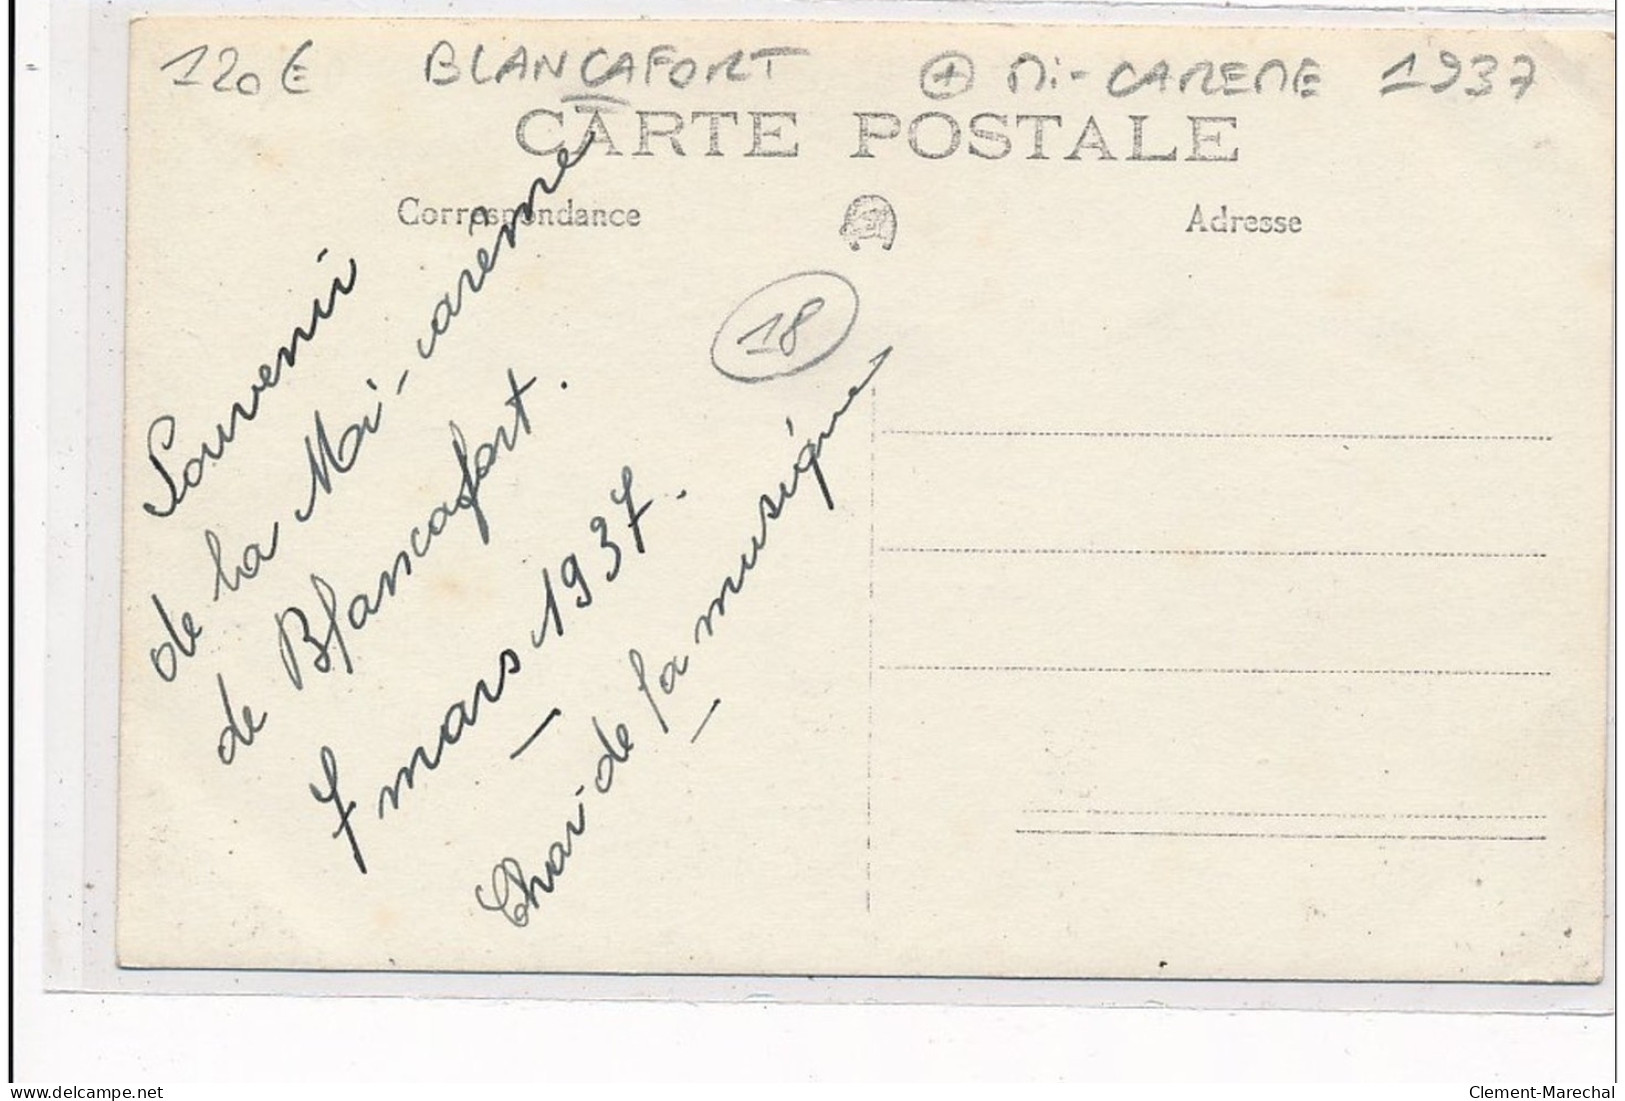 120€ BLANCAFORT + Mi-CAREME 1937
CARTE POSTALE
Correspondance
Adresse
18
Souvenir
de la Mi-carême
de Blancafort.
7 mars 1937.
Char de la musique
delcampe.net
Clement-Marechal